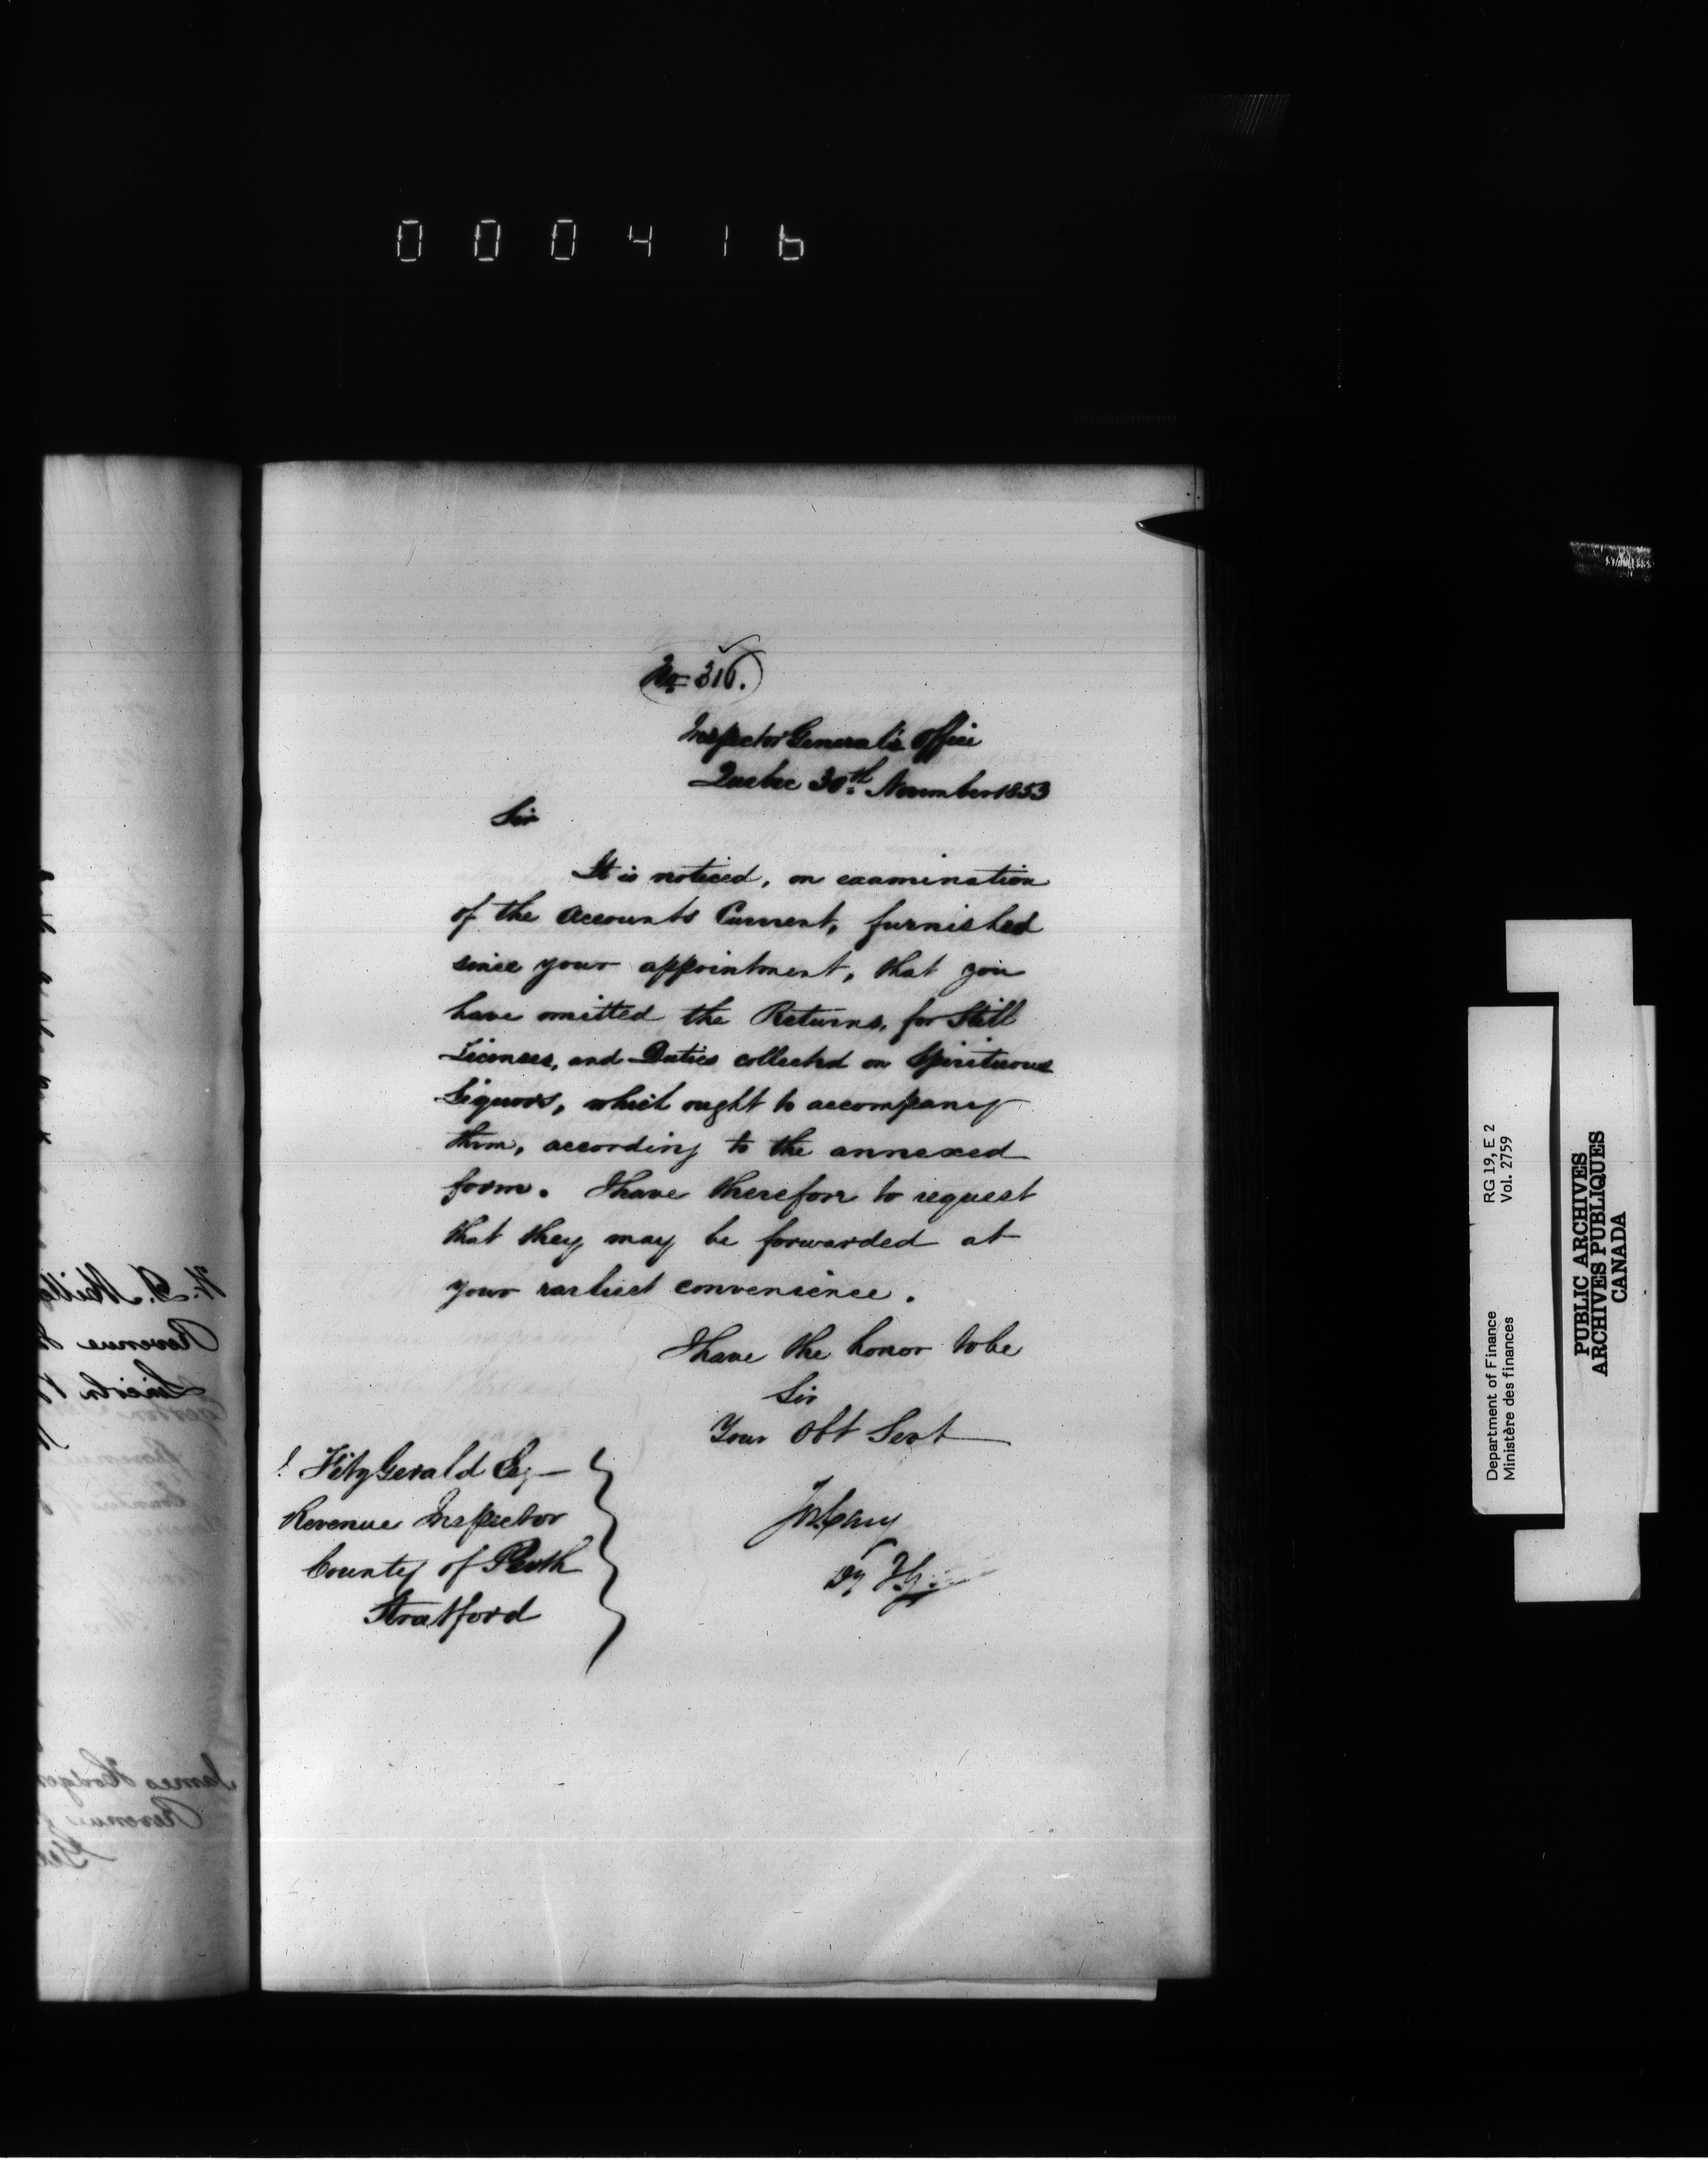 000416
No 316.
Inspector General's Office
Quebec 30th November 1853
Sir
It is noticed, on examination
of the Accounts Current, furnished
since your appointment, that you
have omitted the Returns, for Still
Licenses, and Duties collected on Spirituous
Liquors, which ought to accompany
them, according to the annexed
form. I have therefore to request
that they may be forwarded at
your earliest convenience.
I have the honor to be
Sir
Your Obt Servt
Jos Cary
Dy I.G.
FitzGerald Esq
Revenue Inspector
County of Perth
Stratford
RG 19, E 2
Vol. 2759
Department of Finance
Ministère des finances
PUBLIC ARCHIVES
ARCHIVES PUBLIQUES
CANADA